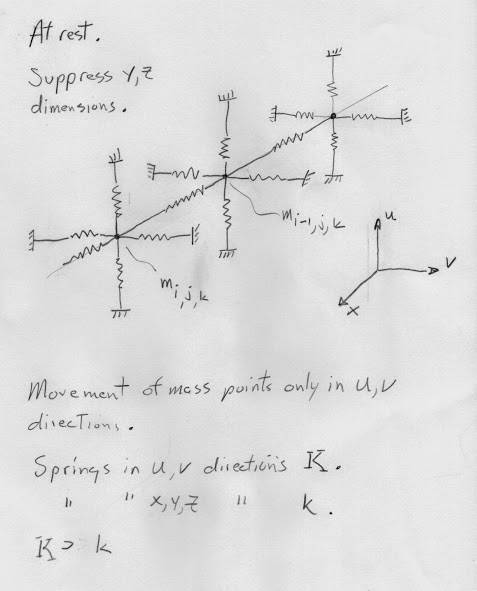 At rest.
Suppress Y,Z
dimensions.
m i-1,j,k
u
v
m i,j,k
x
Movement of mass points only in u,v
directions.
Springs in u,v directions K.
" " x,y,z " k.
K > k